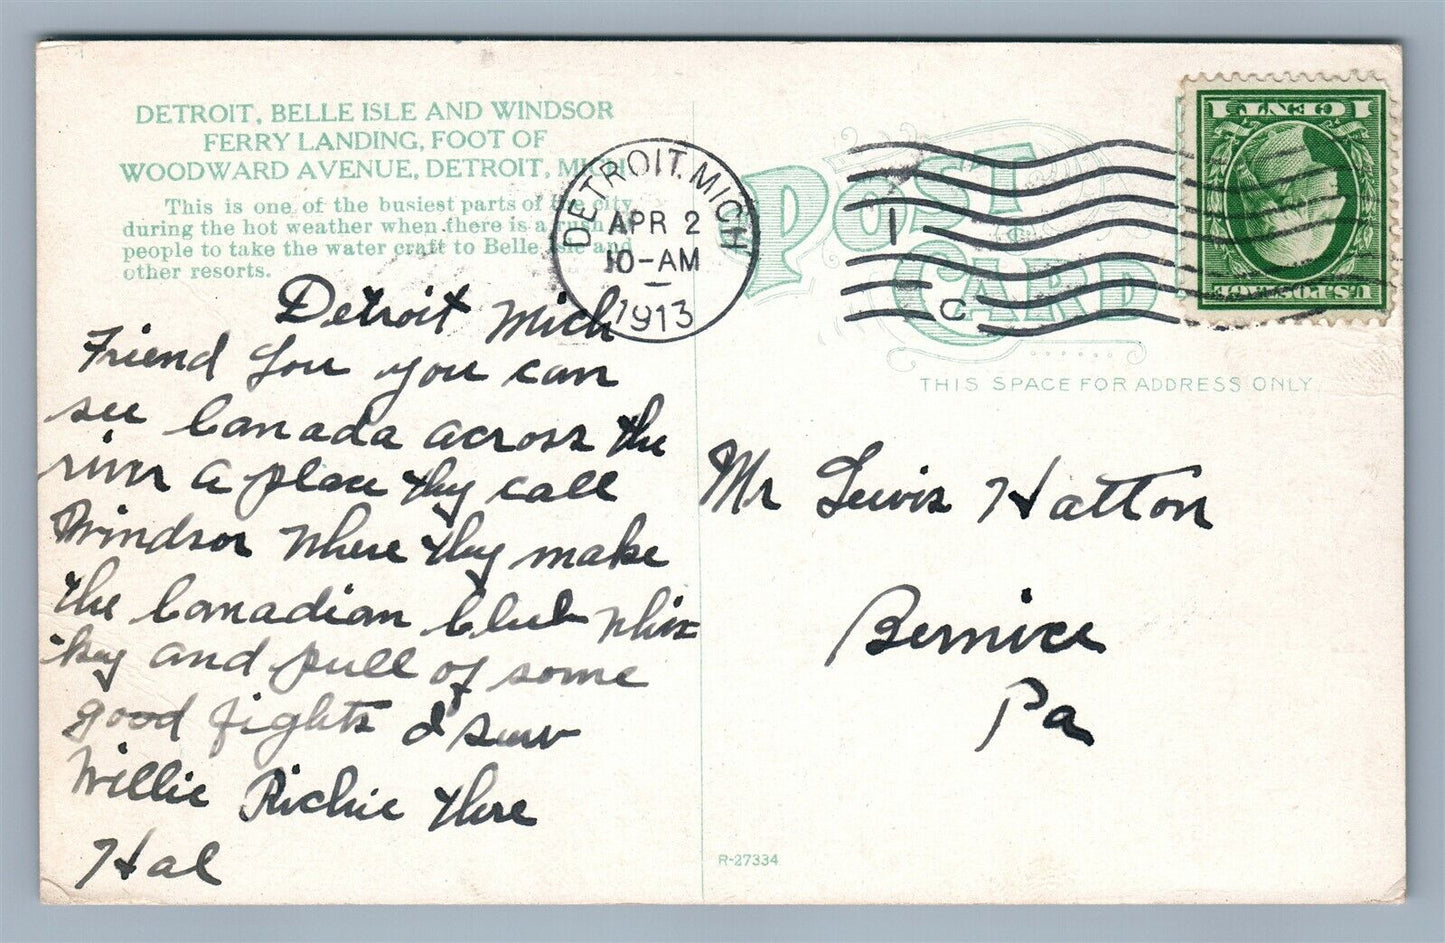 DETROIT, BELLE ISLE AND WINDSOR
FERRY LANDING, FOOT OF
WOODWARD AVENUE, DETROIT, MICH.
This is one of the busiest parts of the city
during the hot weather when there is a rush of
people to take the water craft to Belle Isle and
other resorts.
DETROIT, MICH.
APR 2
10-AM
1913
1
C
POST
CARD
1 CENT 1
U.S. POSTAGE
THIS SPACE FOR ADDRESS ONLY.
Detroit Mich
Friend Lou you can
see Canada across the
river a place they call
Windsor where they make
the Canadian Club Whis
key and pull of some
good fights I saw
Willie Richie there
Hal
Mr Lewis Hatton
Bernice
Pa
R-27334